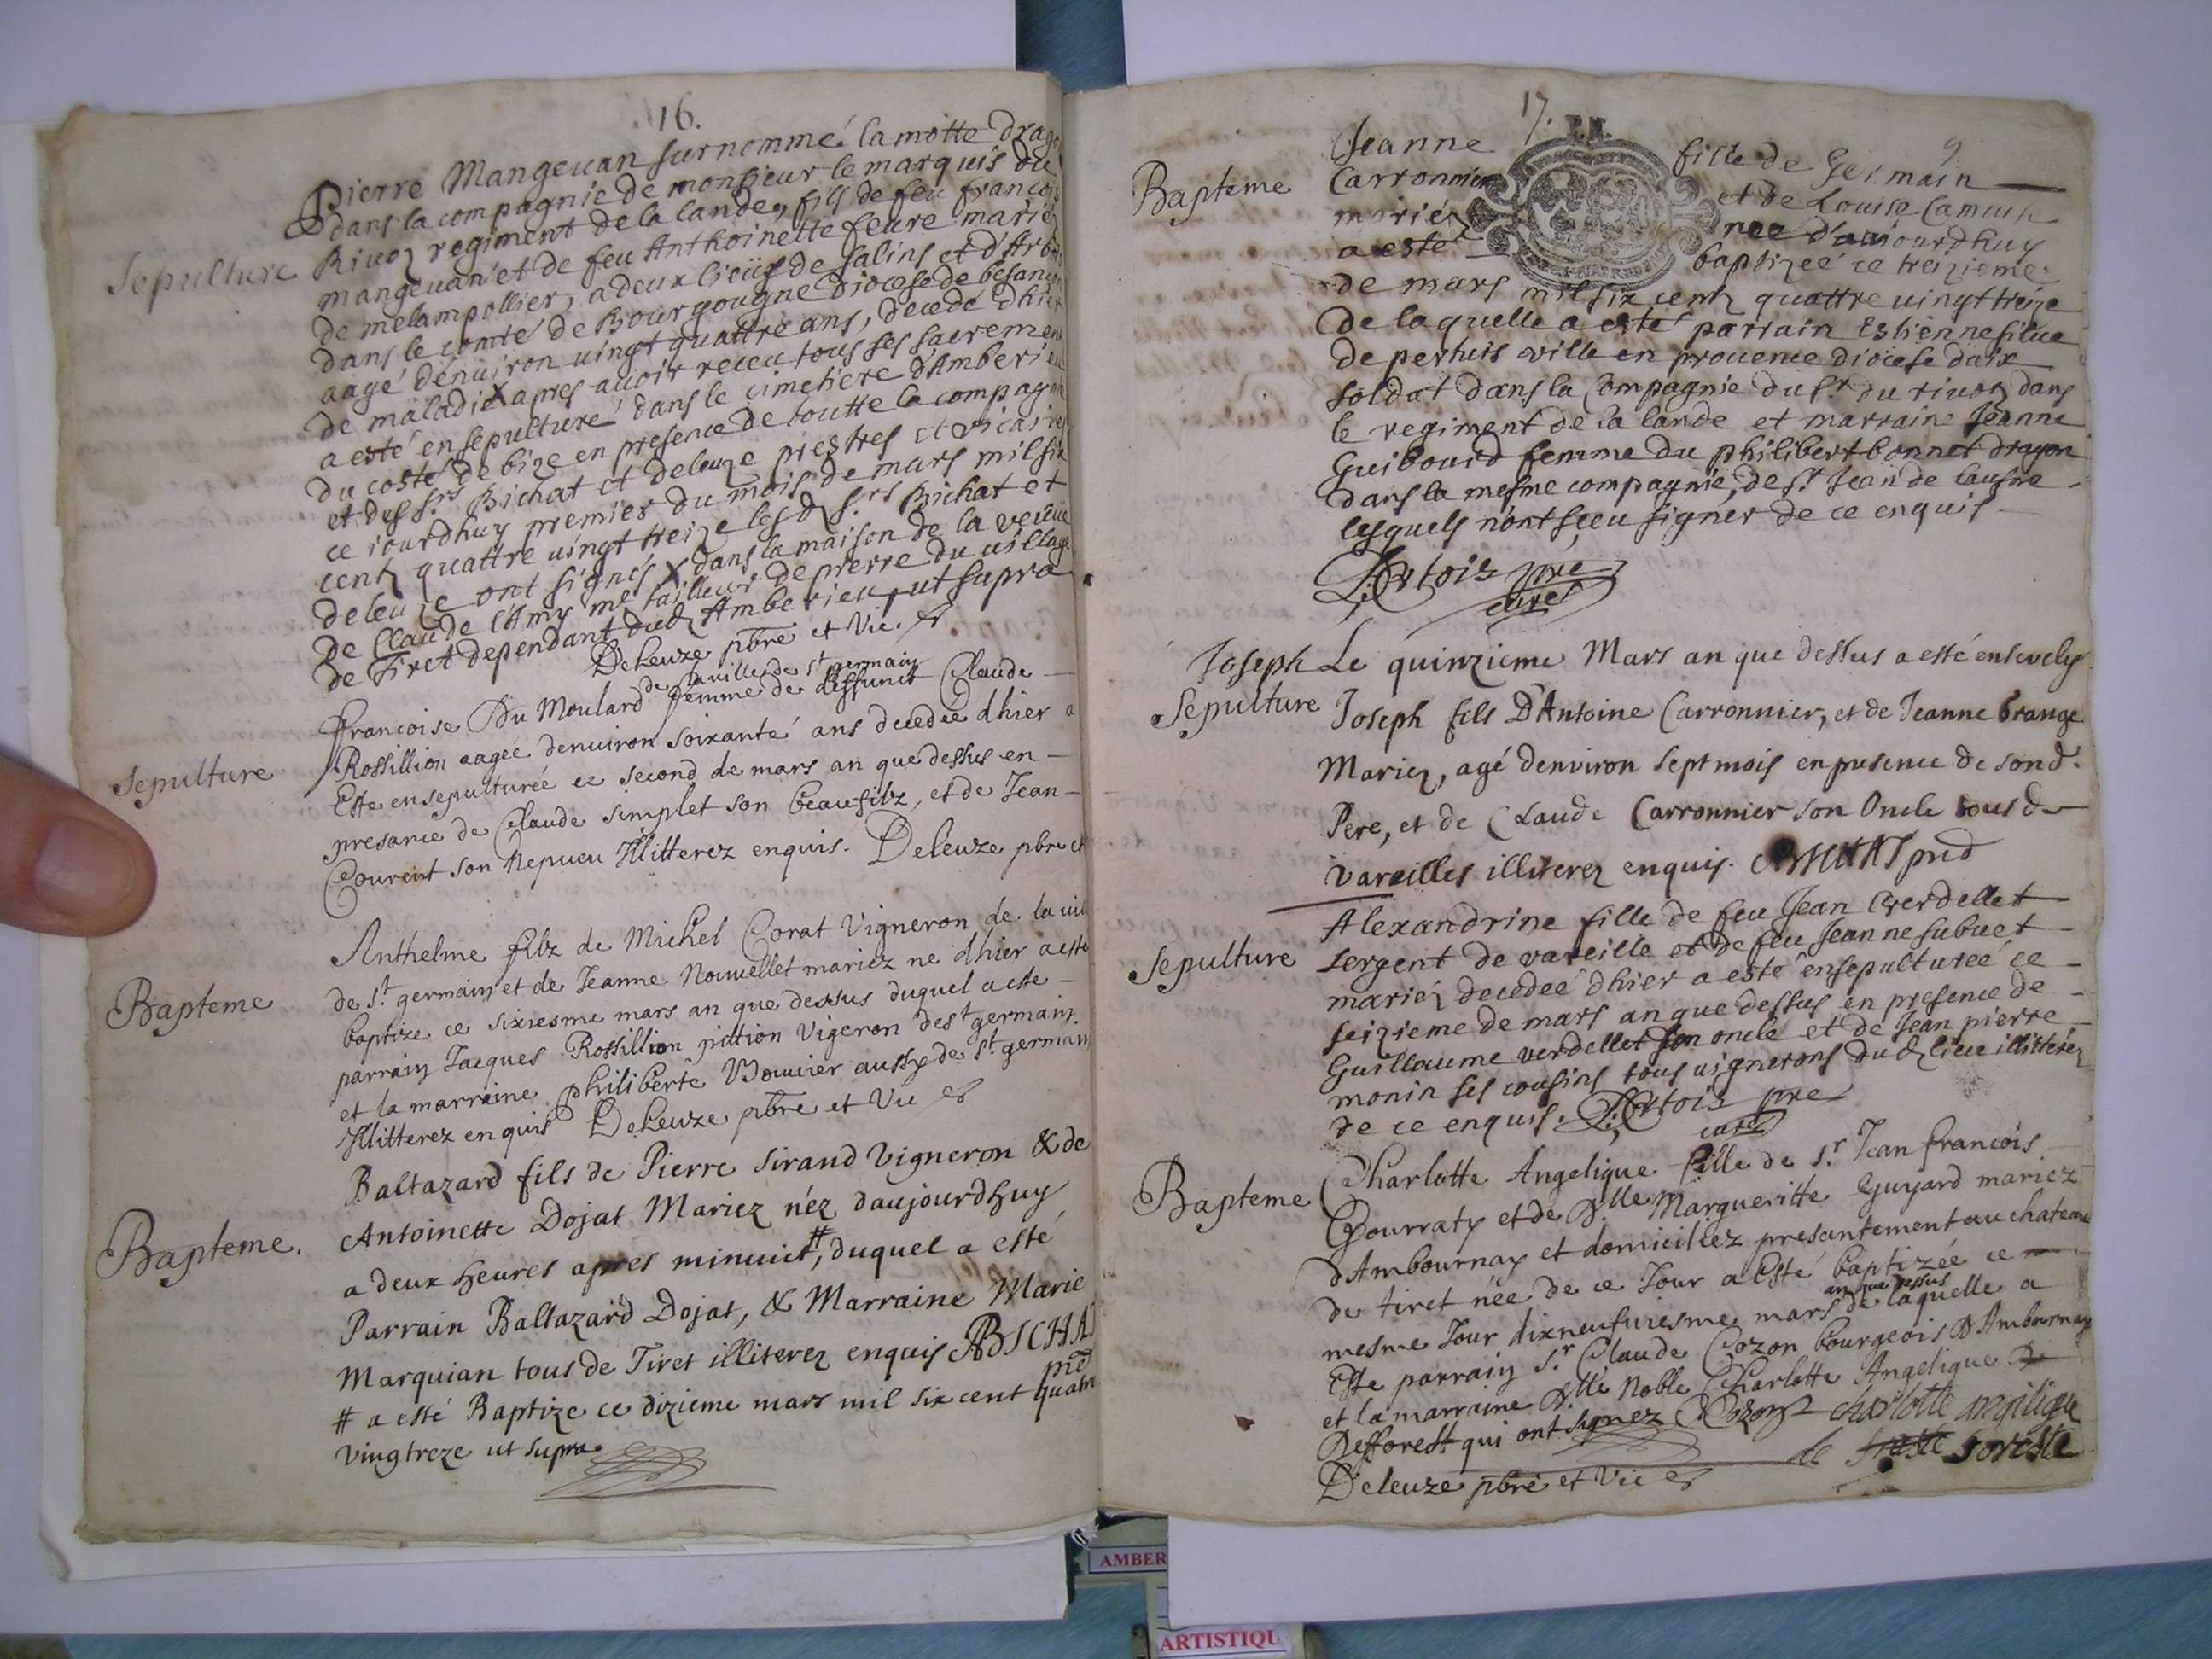 16.
Sepulture
Pierre Mangeuan surnommé la motte drago
dans la compagnie de monsieur le marquis du
Riuoz regiment de la lande, fils de feu francois
mangeuan et de feu Anthoinette feure mariéz
de melampollier, a deux lieües de salins et d'Arbois
dans le comté de Bourgougne Diocese de besançon
aagé denuiron uingt quattre ans, decedé dhier
de maladie X apres auoir receu tous ses sacrement
a esté ensepulturé dans le cimetiere d'Amberieu
du costé de bize en presence de toutte la compagnie
et des srs Bichat et deleuze prestres et vicaires
ce iourdhuy premier du mois de mars mil six
centz quattre uingt treize lesd srs Bichat et
deleuze ont signés X dans la maison de la veuue
de Claude l'Amy me tailleur de pierre du uillage
de Tiret dependant dud Amberieu, ut supra
Deleuze pbre et Vic.
Sepulture
de la ville de st germain
francoise Du Moulard femme de deffunct Claude
Rossillion aagee denuiron soixante ans decedee dhier a
Este ensepulturée ce second de mars an que dessus en-
presance de Claude simplet son beaufilz, et de Jean-
Courent son Nepueu Illitterez enquis. Deleuze pbre et
Bapteme
Anthelme filz de Michel Corat Vigneron de la uill
de st germain et de Jeanne Nouuellet mariez ne dhier a este
baptize ce sixiesme mars an que dessus duquel a este-
parrain Jacques Rossillion pittion Vigeron de st germain
et la marraine philiberte Bouuier aussy de st germain
Illitterez enquis Deleuze pbre et Vic
Bapteme.
Baltazard fils de Pierre Sirand Vigneron & de
Antoinette Dojat Mariez néz daujourdhuy
a deux heures apres minuict #, duquel a esté
Parrain Baltazard Dojat, & Marraine Marie
Marquian tous de Tiret illiterez enquis BICHAT
# a esté Baptize ce dizieme mars mil six cent quatre
vingtreze ut supra
17.
9
Bapteme
Jeanne fille de Germain
Carronnier et de Louise Camus
mariéz nee d'auiourdhuy
a esté baptizeé ce treizieme
de mars mil six centz quattre uingt treize
de laquelle a esté parrain Estienne silue
de pertuis ville en prouence diocese daix
soldat dans la Compagnie du sr du riuoz dans
le regiment de la lande et marraine Jeanne
Guibourd femme du philibert bonnet dragon
dans la mesme compagnie, de st Jean de lausne
lesquels n'ont sceu signer de ce enquis
pre
curé
Joseph
Sepulture
Le quinzieme Mars an que dessus a esté ensevely
Joseph fils D'Antoine Carronnier, et de Jeanne brange
Mariez, agé denviron sept mois en presence de sond.
Pere, et de Claude Carronnier son Oncle tous de
Vareilles illiterez enquis. BICHAT prd
Sepulture
Alexandrine fille de feu Jean Verdellet
sergent de vareille et de feu Jeanne subuet
mariéz decedeé dhier a esté ensepultureé ce
seizieme de mars an que dessus en presence de
Guillaume verdellet son oncle et de Jean pierre
monin ses cousins tous uignerons dud lieu illitteréz
de ce enquis. pre
curé
Bapteme
Charlotte Angelique fille de sr Jean francois
Gourraty et de Dlle Margueritte Guyard mariez
d'Ambournay et domiciliez presantement au chateau
de tiret née de ce Jour a Esté baptizée ce
an que dessus
mesme Jour dixneufuiesme mars de laquelle a
Este parrain sr Claude Cozon bourgeois D'Ambournay
et la marraine Dlle Noble Charlotte Angelique De
Defforest qui ont signez Cozon charlotte angelique
de foreste
Deleuze pbre et Vic
AMBER
ARTISTIQU